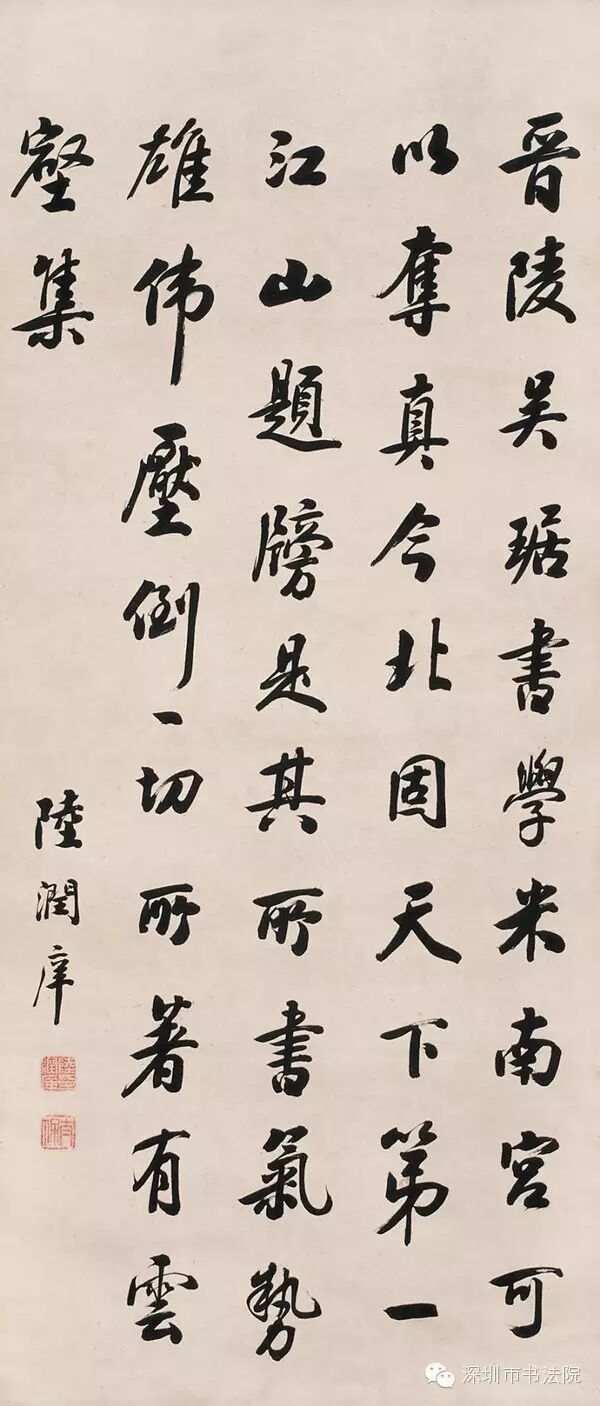 晋陵吴琚書學米南宫可
以奪真今北固天下第一
江山題牓是其所書氣勢
雄偉壓倒一切所著有雲
壑集
陸潤庠
深圳市书法院